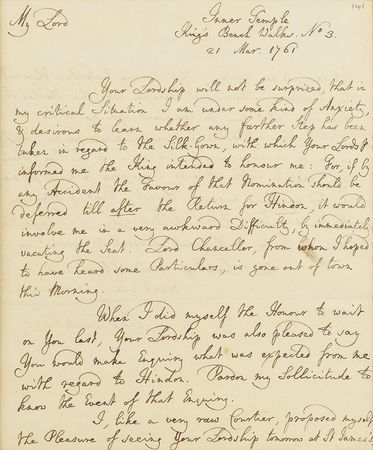 141
Inner Temple
My Lord
King's Bench Walks. No 3.
21 Mar. 1761
Your Lordship will not be surprized, that in
my critical Situation I am under some kind of Anxiety,
& desirous to learn whether any further Step has been
taken in regard to the Silk-Gown, with which Your Lordsp
informed me the King intended to honour me: For, if by
any Accident the Favour of that Nomination should be
deferred till after the Return for Hindon, it would
involve me in a very awkward Difficulty, by immediately
vacating the Seat. Lord Chancellor, from whom I hoped
to have heard some Particulars, is gone out of town
this Morning.
When I did myself the Honour to wait
on You last, Your Lordship was also pleased to say
You would make Enquiry what was expected from me
with regard to Hindon. Pardon my Sollicitude to
know the Event of that Enquiry.
I, like a very raw Courtier, proposed myself
the Pleasure of seeing Your Lordship tomorrow at St James's